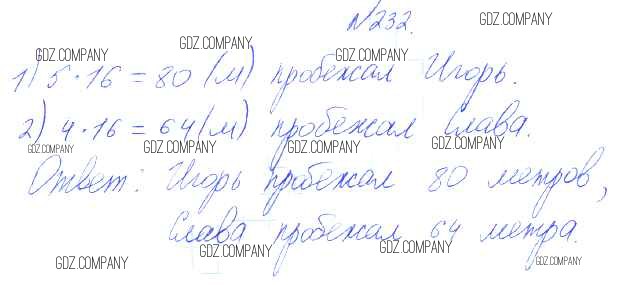 №232.
GDZ.COMPANY GDZ.COMPANY GDZ.COMPANY GDZ.COMPANY
1) 5·16=80 (м) пробежал Игорь.
GDZ.COMPANY GDZ.COMPANY GDZ.COMPANY
2) 4·16=64(м) пробежал Слава.
GDZ.COMPANY GDZ.COMPANY GDZ.COMPANY GDZ.COMPANY
Ответ: Игорь пробежал 80 метров,
Слава пробежал 64 метра.
GDZ.COMPANY GDZ.COMPANY GDZ.COMPANY GDZ.COMPANY